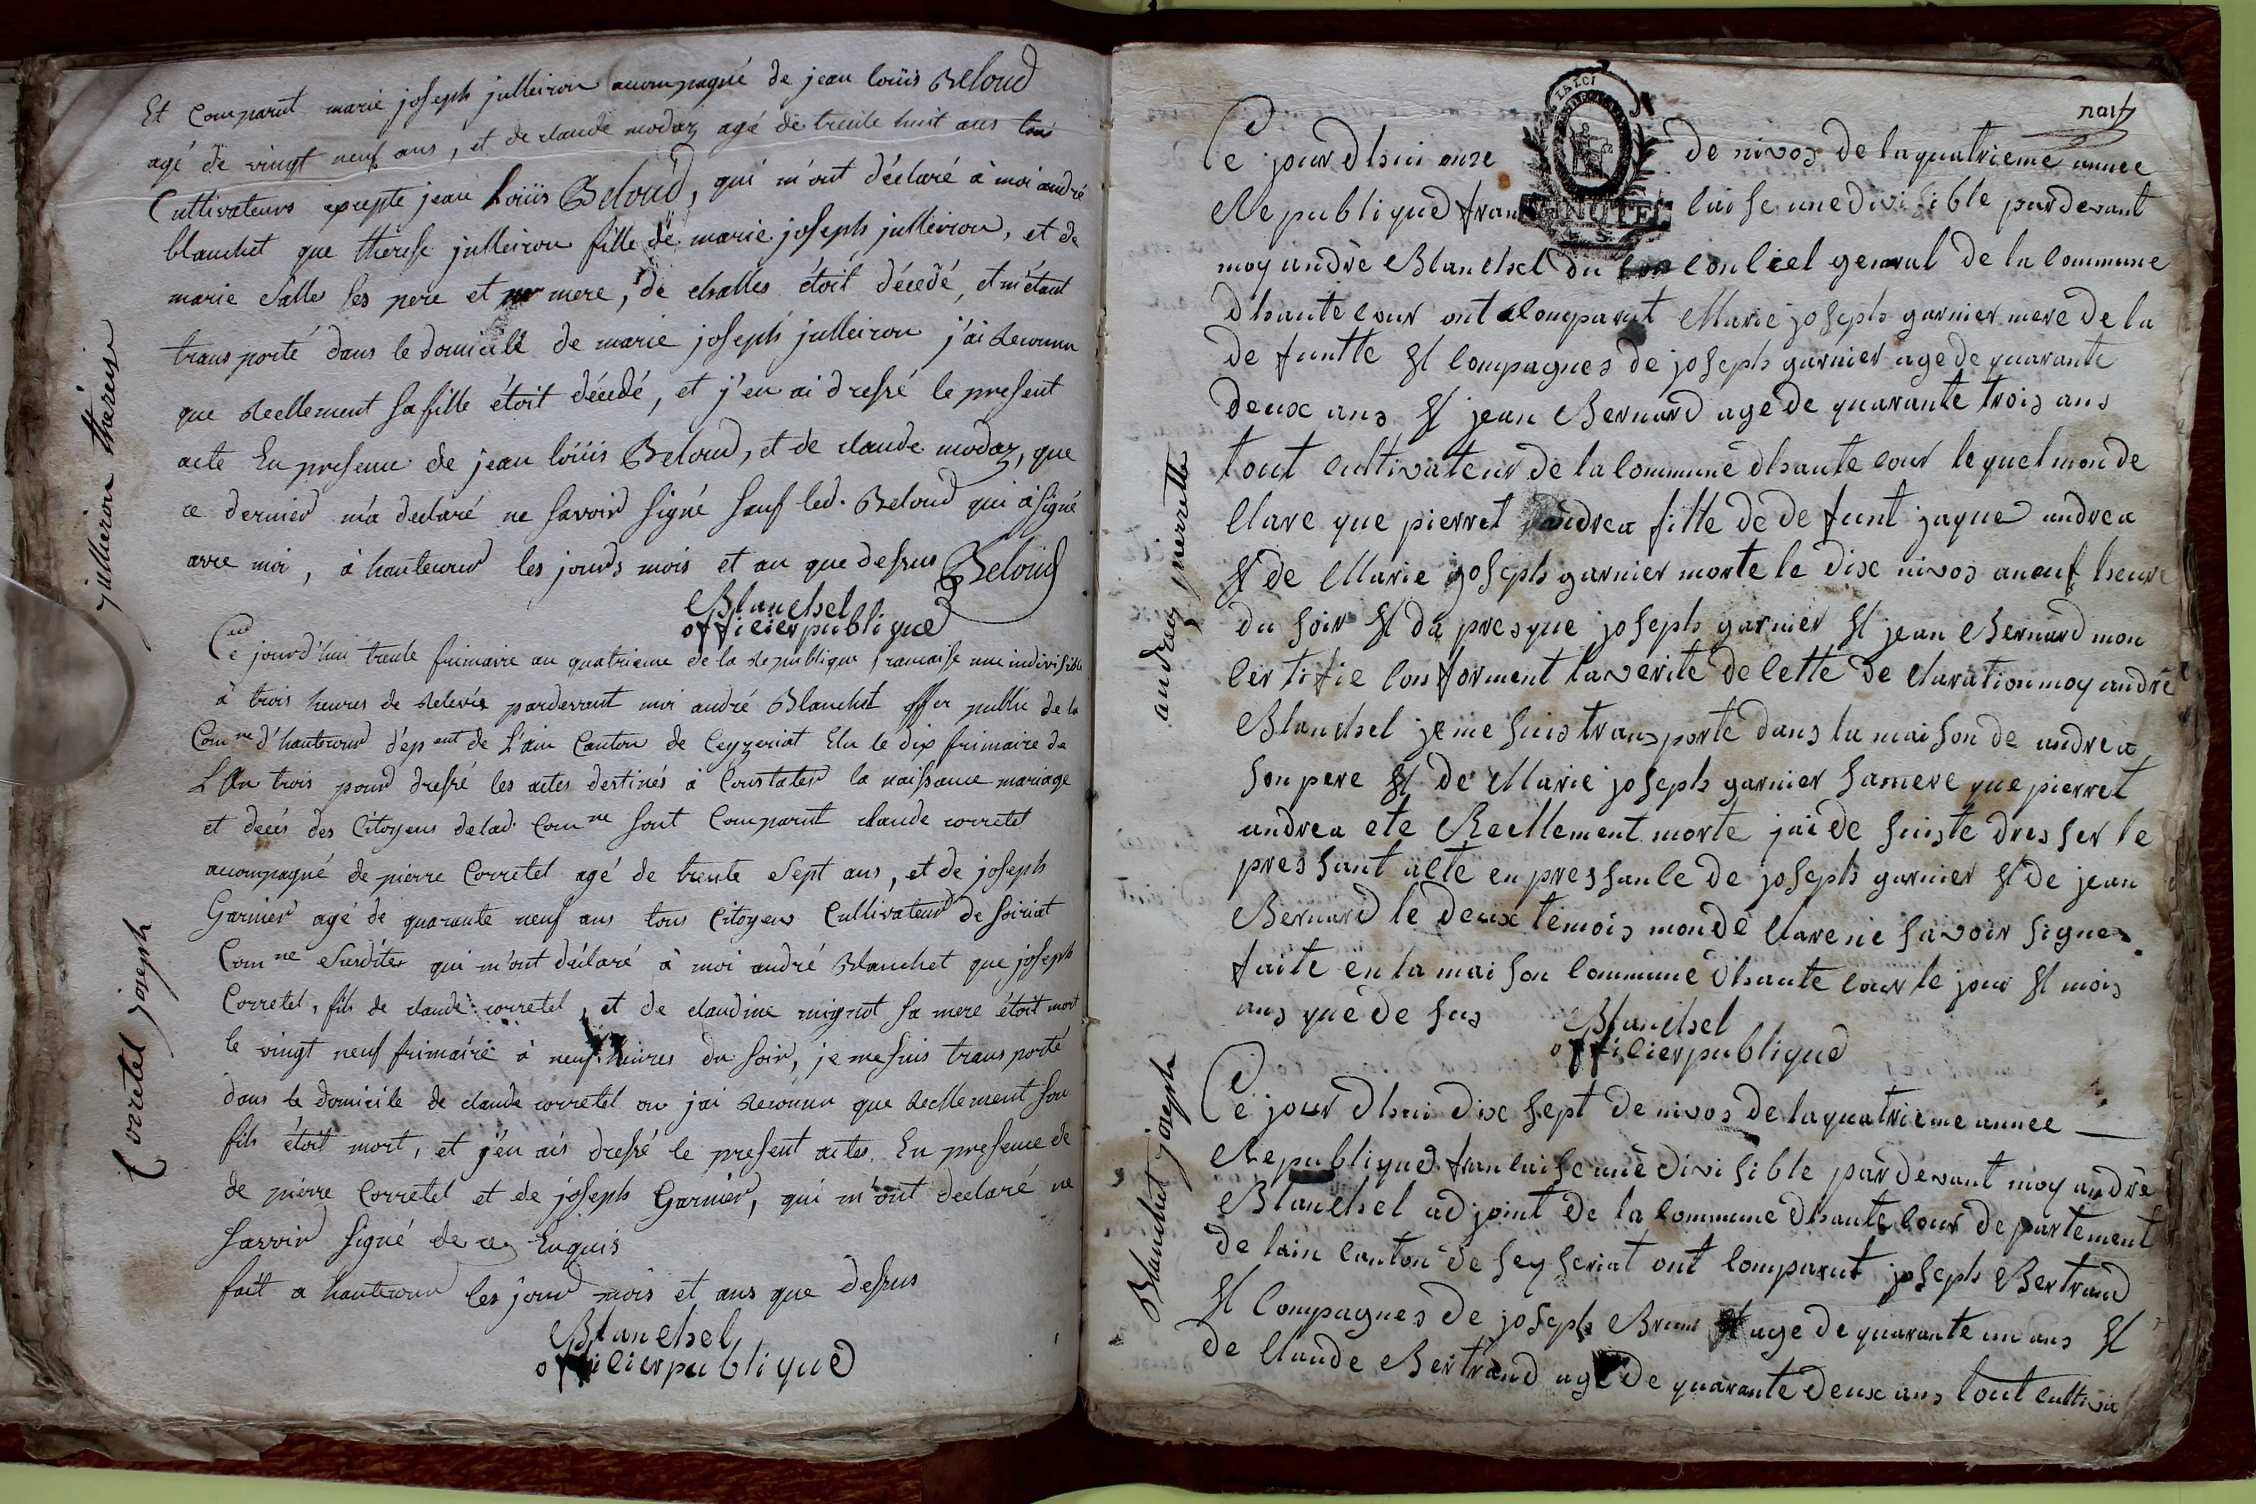 Et Comparut marie joseph jullieiron acompagné de jean loüis Beloud
agé de vingt neuf ans, et de claude modaz agé de trente huit ans tous
Cultivateurs exepte jean loüis Beloud, qui m'ont déclaré à moi andré
blanchet que therese jullieiron fille de marie joseph jullieiron, et de
marie salle ses pere et mere, de challes étoit décedé, et m'étant
trans porté dans le domicille de marie joseph jullieiron j'ai reconnu
que reellement sa fille étoit décedé, et j'en ai dressé le present
acte En presence de jean loüis Beloud, et de claude modaz, que
ce dernier m'a declaré ne savoir signé sauf led. Beloud qui à signé
avec moi, à hautecour les jours mois et an que dessus Beloud
jullieiron therese
Blanchet
officier publique
Ce jourd'hui trente frimaire an quatrieme de la republique francaise une indivisible
à trois heures de relevée pardevant moi andré Blanchet offer public de la
Comne d'hautecour d'epent de L'ain Canton de Ceyzeriat Elu le dix frimaire de
L'An trois pour dressé les actes destinés à Constater la naissance mariage
et decés des Citoyens delad. Comne sont Comparut claude corretel
acompagné de pierre Corretel agé de trente sept ans, et de joseph
Garnier agé de quarante neuf ans tous Citoyens Cultivateur de soiriat
Comne susdites qui m'ont déclaré à moi andré Blanchet que joseph
Corretel, fils de claude corretel, et de claudine mignot sa mere étoit mort
le vingt neuf frimaire à neuf heures du soir, je me suis trans porté
dans le domicile de claude corretel ou jai reconnu que reellement son
fils étoit mort, et j'en ais dressé le present actes. En presence de
de pierre Corretel et de joseph Garnier, qui m'ont declaré ne
savoir signé de ce Enquis
fait a hautecour les jour mois et ans que dessus
Corretel joseph
Blanchet
officier publique
LA LOI
Ce jour dhui onze de nivos de la quatrieme annee
Republique fran caise une divisible par devant
moy andrè Blanchet du conciel general de la commune
dhaute cour ont comparut Marie joseph garnier mere de la
de funtte et compagnes de joseph garnier age de quarante
deux ans et jean Bernard age de quarante trois ans
tout cultivateur de la commune dhaute cour le quel mon de
clare que pierret andrea fille de de funt jaque andrea
et de Marie joseph garnier morte le dix nivos a neuf heure
du soir et da pres que joseph garnier et jean Bernard mon
certifie conforment la verite de cette de claration moy andrè
Blanchet je me suis trans porte dans la maison de andrea
son pere et de Marie joseph garnier sa mere que pierret
andrea ete Reellement morte jai de suiste dresser le
pressant acte en pressance de joseph garnier et de jean
Bernard le deux temois mon de clare ne savoir signer
faite en la maison commune dhaute cour le jour et mois
ans que de sus
andrea pierrette
Blanchet
officier publique
Ce jour dhui dix sept de nivos de la quatrieme annee
Republique francaise une divisible par devant moy andrè
Blanchet adjoint de la commune dhaute cour departement
de lain canton de seyseriat ont comparut joseph Bertrand
et compagnes de joseph Brunet age de quarante un ans et
de claude Bertrand age de quarante deux ans tout cultiva
Blanchet joseph